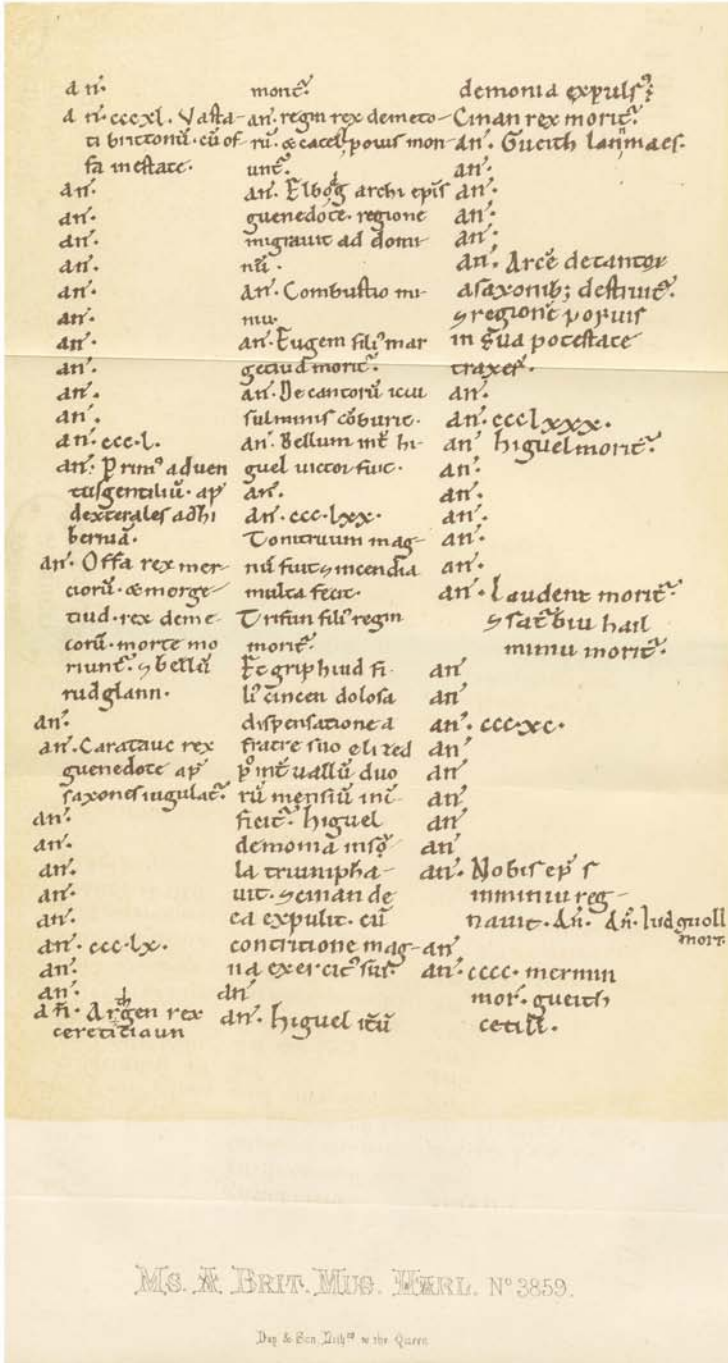 an̄.
an̄. cccxl. Vasta-
ti brittonū. cū of-
fa in estate.
an̄.
an̄.
an̄.
an̄.
an̄.
an̄.
an̄.
an̄.
an̄.
an̄.
an̄. ccc·l.
an̄. Prim᾿ aduen
tus gentiliū. ap᾿
dexterales ad hi
berniā.
an̄. Offa rex mer-
ciorū. & morge-
tiud. rex deme-
torū. morte mo
riunt᾿. ⁊ bellū
rudglann.
an̄.
an̄. Caratauc rex
guenedote ap᾿
saxones iugulat᾿.
an̄.
an̄.
an̄.
an̄.
an̄.
an̄. ccc·lx.
an̄.
an̄.
an̄. Arthgen rex
ceretitiaun
morit᾿.
an̄. regin rex demeto-
rū. & catell pouis mori-
unt᾿.
an̄. Elbodg archi ep̄is
guenedote. regione
migrauit ad domi-
nū.
an̄. Combustio mi-
niu.
an̄. Eugem fili᾿ mar
getiud morit᾿.
an̄. Decantorū ictu
fulminis cōburit᾿.
an̄. Bellum int̄ hi-
guel uictor fuit.
an̄.
an̄. ccc·lxx.
Tonitruum mag-
nū fuit ⁊ incendia
multa fecit.
Trifun fili᾿ regin
morit᾿.
Et griphiud fi-
li᾿ cincen dolosa
dispensatione a
fratre suo elized
p᾿ int̄ uallū duo
rū mensiū int̄-
ficit᾿. higuel
demonia insō
la triumpha-
uit. ⁊ cinan de
ea expulit. cū
contritione mag-
na exercit᾿ sui.
an̄
an̄. higuel itū
demonia expuls᾿ ÷
Cinan rex morit᾿.
an̄. Gueith lannmaes.
an̄.
an̄.
an̄.
an̄.
an̄. Arcē detantor
a saxonib; destruit᾿.
⁊ regionē poyuis
in sua potestate
traxer̄.
an̄.
an̄. ccclxxx.
an̄ higuel morit᾿.
an̄.
an̄.
an̄.
an̄.
an̄.
an̄. laudent morit᾿.
⁊ sat᾿biu hail
miniu morit᾿.
an̄
an̄
an̄. ccc·xc.
an̄
an̄
an̄
an̄
an̄
an̄. Nobis ep᾿ s
in miniu reg-
nauit. an̄. an̄. Iudguoll
mort.
an̄
an̄. cccc. mermin
mor᾿. gueith
cetill.
MS. A BRIT. MUS. HARL. Nº 3859.
Day & Son, Lithrs. to the Queen